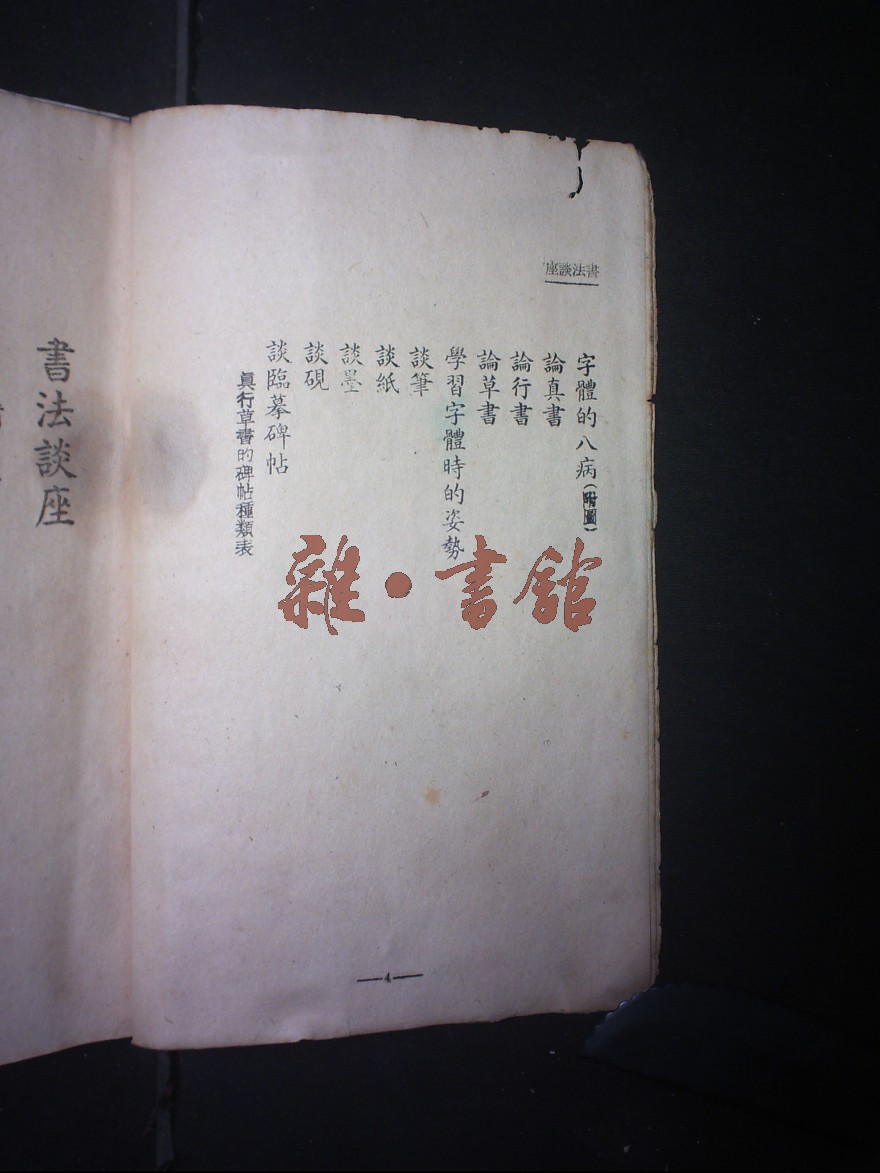 座談法書
字體的八病(附圖)
論真書
論行書
論草書
學習字體時的姿勢
談筆
談紙
談墨
談硯
談臨摹碑帖
真行草書的碑帖種類表
—4—
書法談座
雜·書館